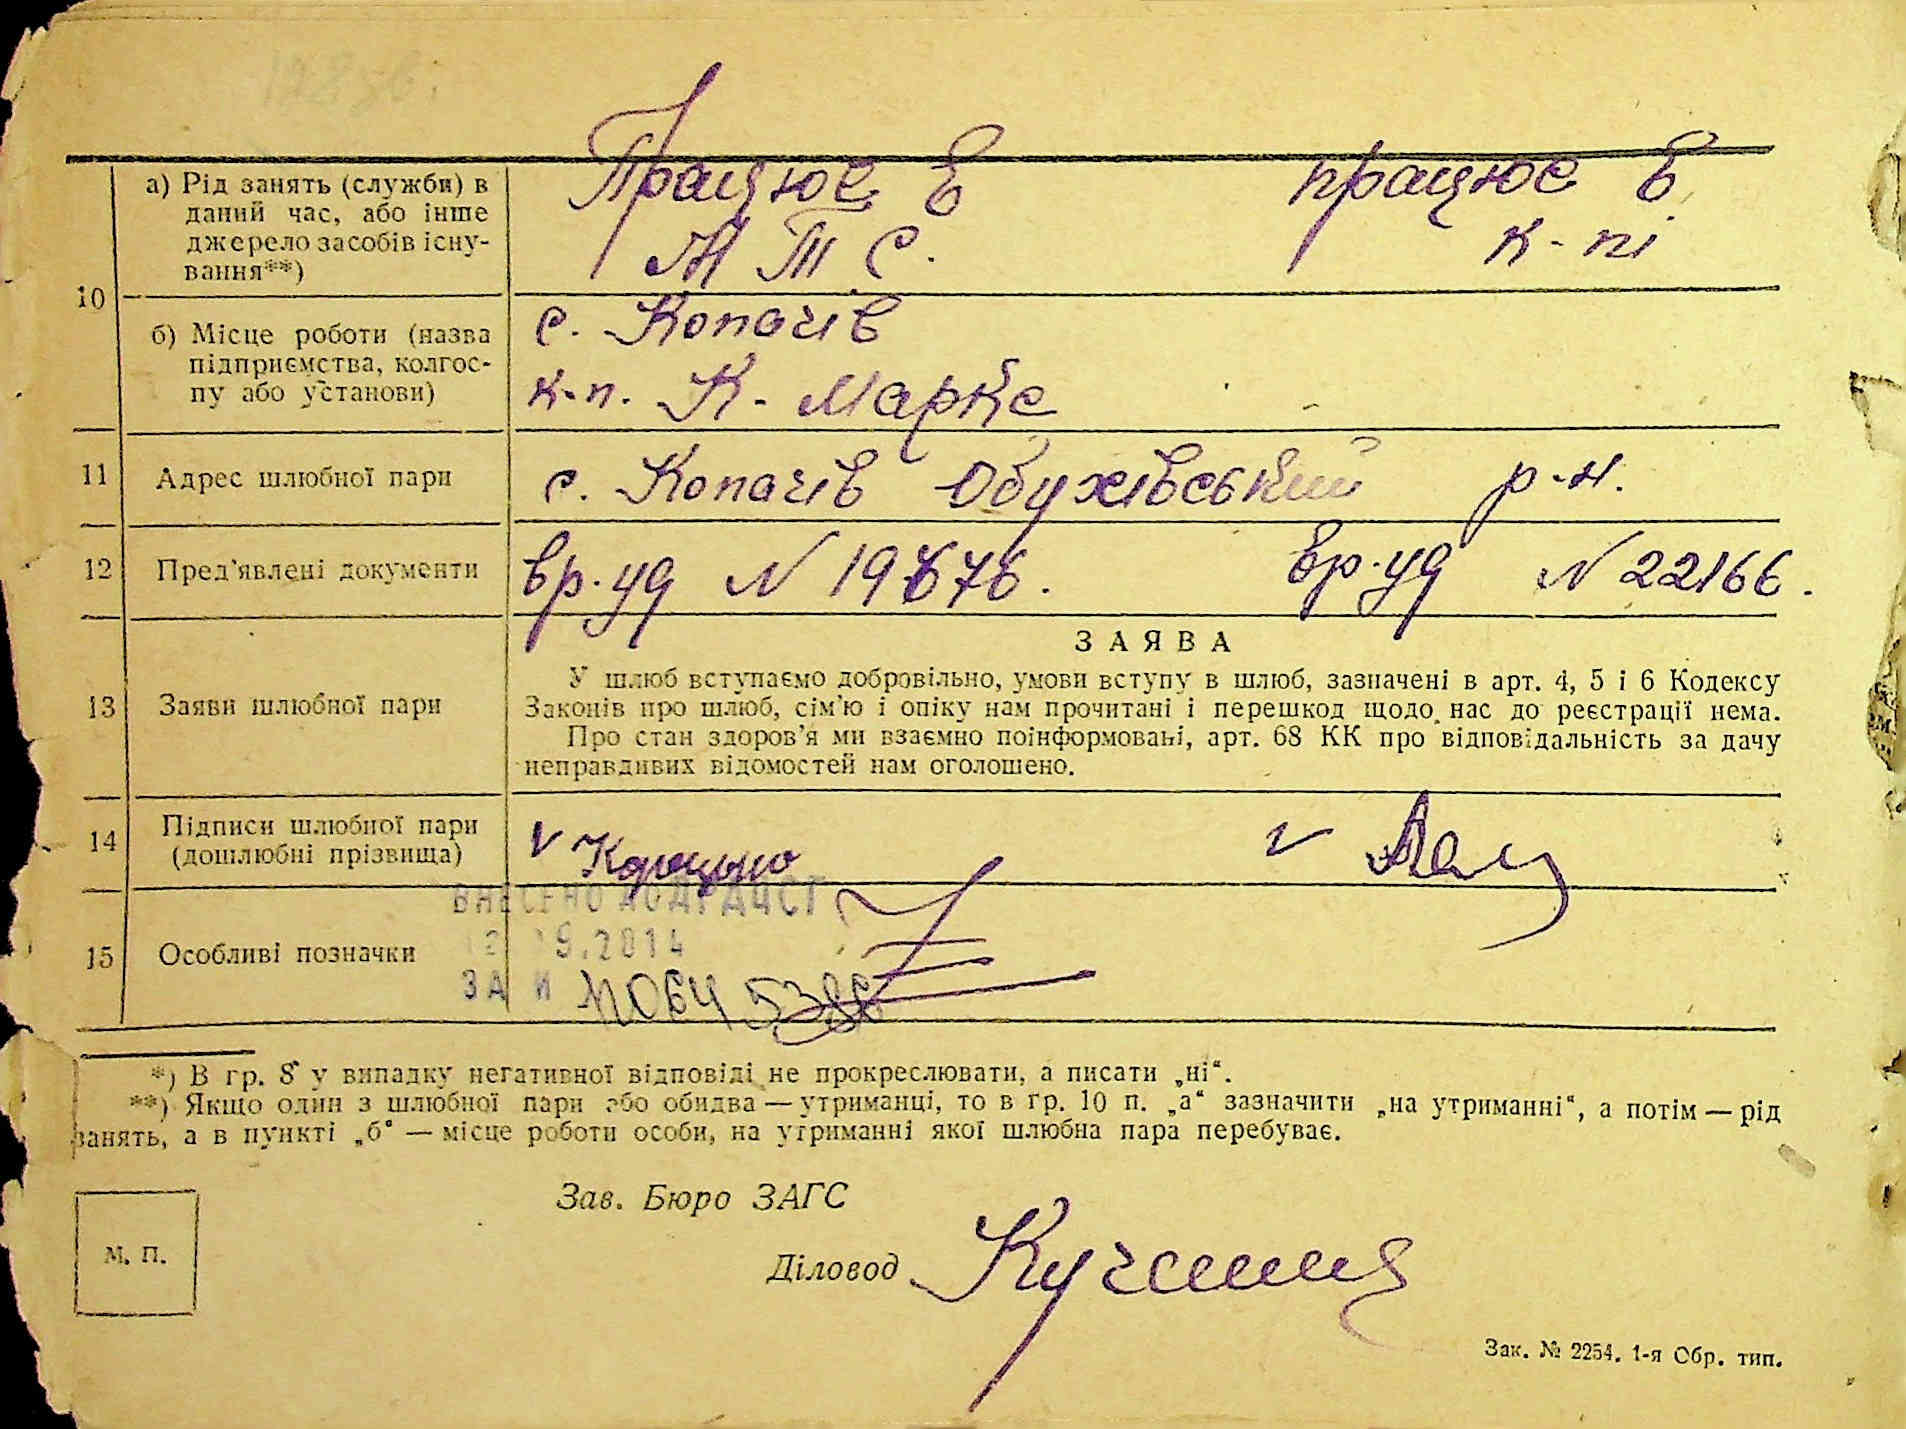 Працює в працює в
М Т С. к-пі
10
а) Рід занять (служби) в
даний час, або інше
джерело засобів існу-
вання**)
с. Копачів
б) Місце роботи (назва
підприємства, колгос-
пу або установи)
к-п. К. Маркс
11 Адрес шлюбної пари с. Копачів Обухівський р-н.
12 Пред'явлені документи вр.уд N вр.уд N 22166.
13 Заяви шлюбної пари
ЗАЯВА
У шлюб вступаємо добровільно, умови вступу в шлюб, зазначені в арт. 4, 5 і 6 Кодексу
Законів про шлюб, сім'ю і опіку нам прочитані і перешкод щодо нас до реєстрації нема.
Про стан здоров'я ми взаємно поінформовані, арт. 68 КК про відповідальність за дачу
неправдивих відомостей нам оголошено.
14 Підписи шлюбної пари
(дошлюбні прізвища)
V V
ВНЕСЕНО ДО ДРАЦСГ
15 Особливі позначки
9.2014
ЗА
*) В гр. 8 у випадку негативної відповіді не прокреслювати, а писати „ні“.
**) Якщо один з шлюбної пари або обидва — утриманці, то в гр. 10 п. „а“ зазначити „на утриманні“, а потім — рід
занять, а в пункті „б“ — місце роботи особи, на утриманні якої шлюбна пара перебуває.
Зав. Бюро ЗАГС
м. п.
Діловод
Зак. № 2254. 1-я Обр. тип.